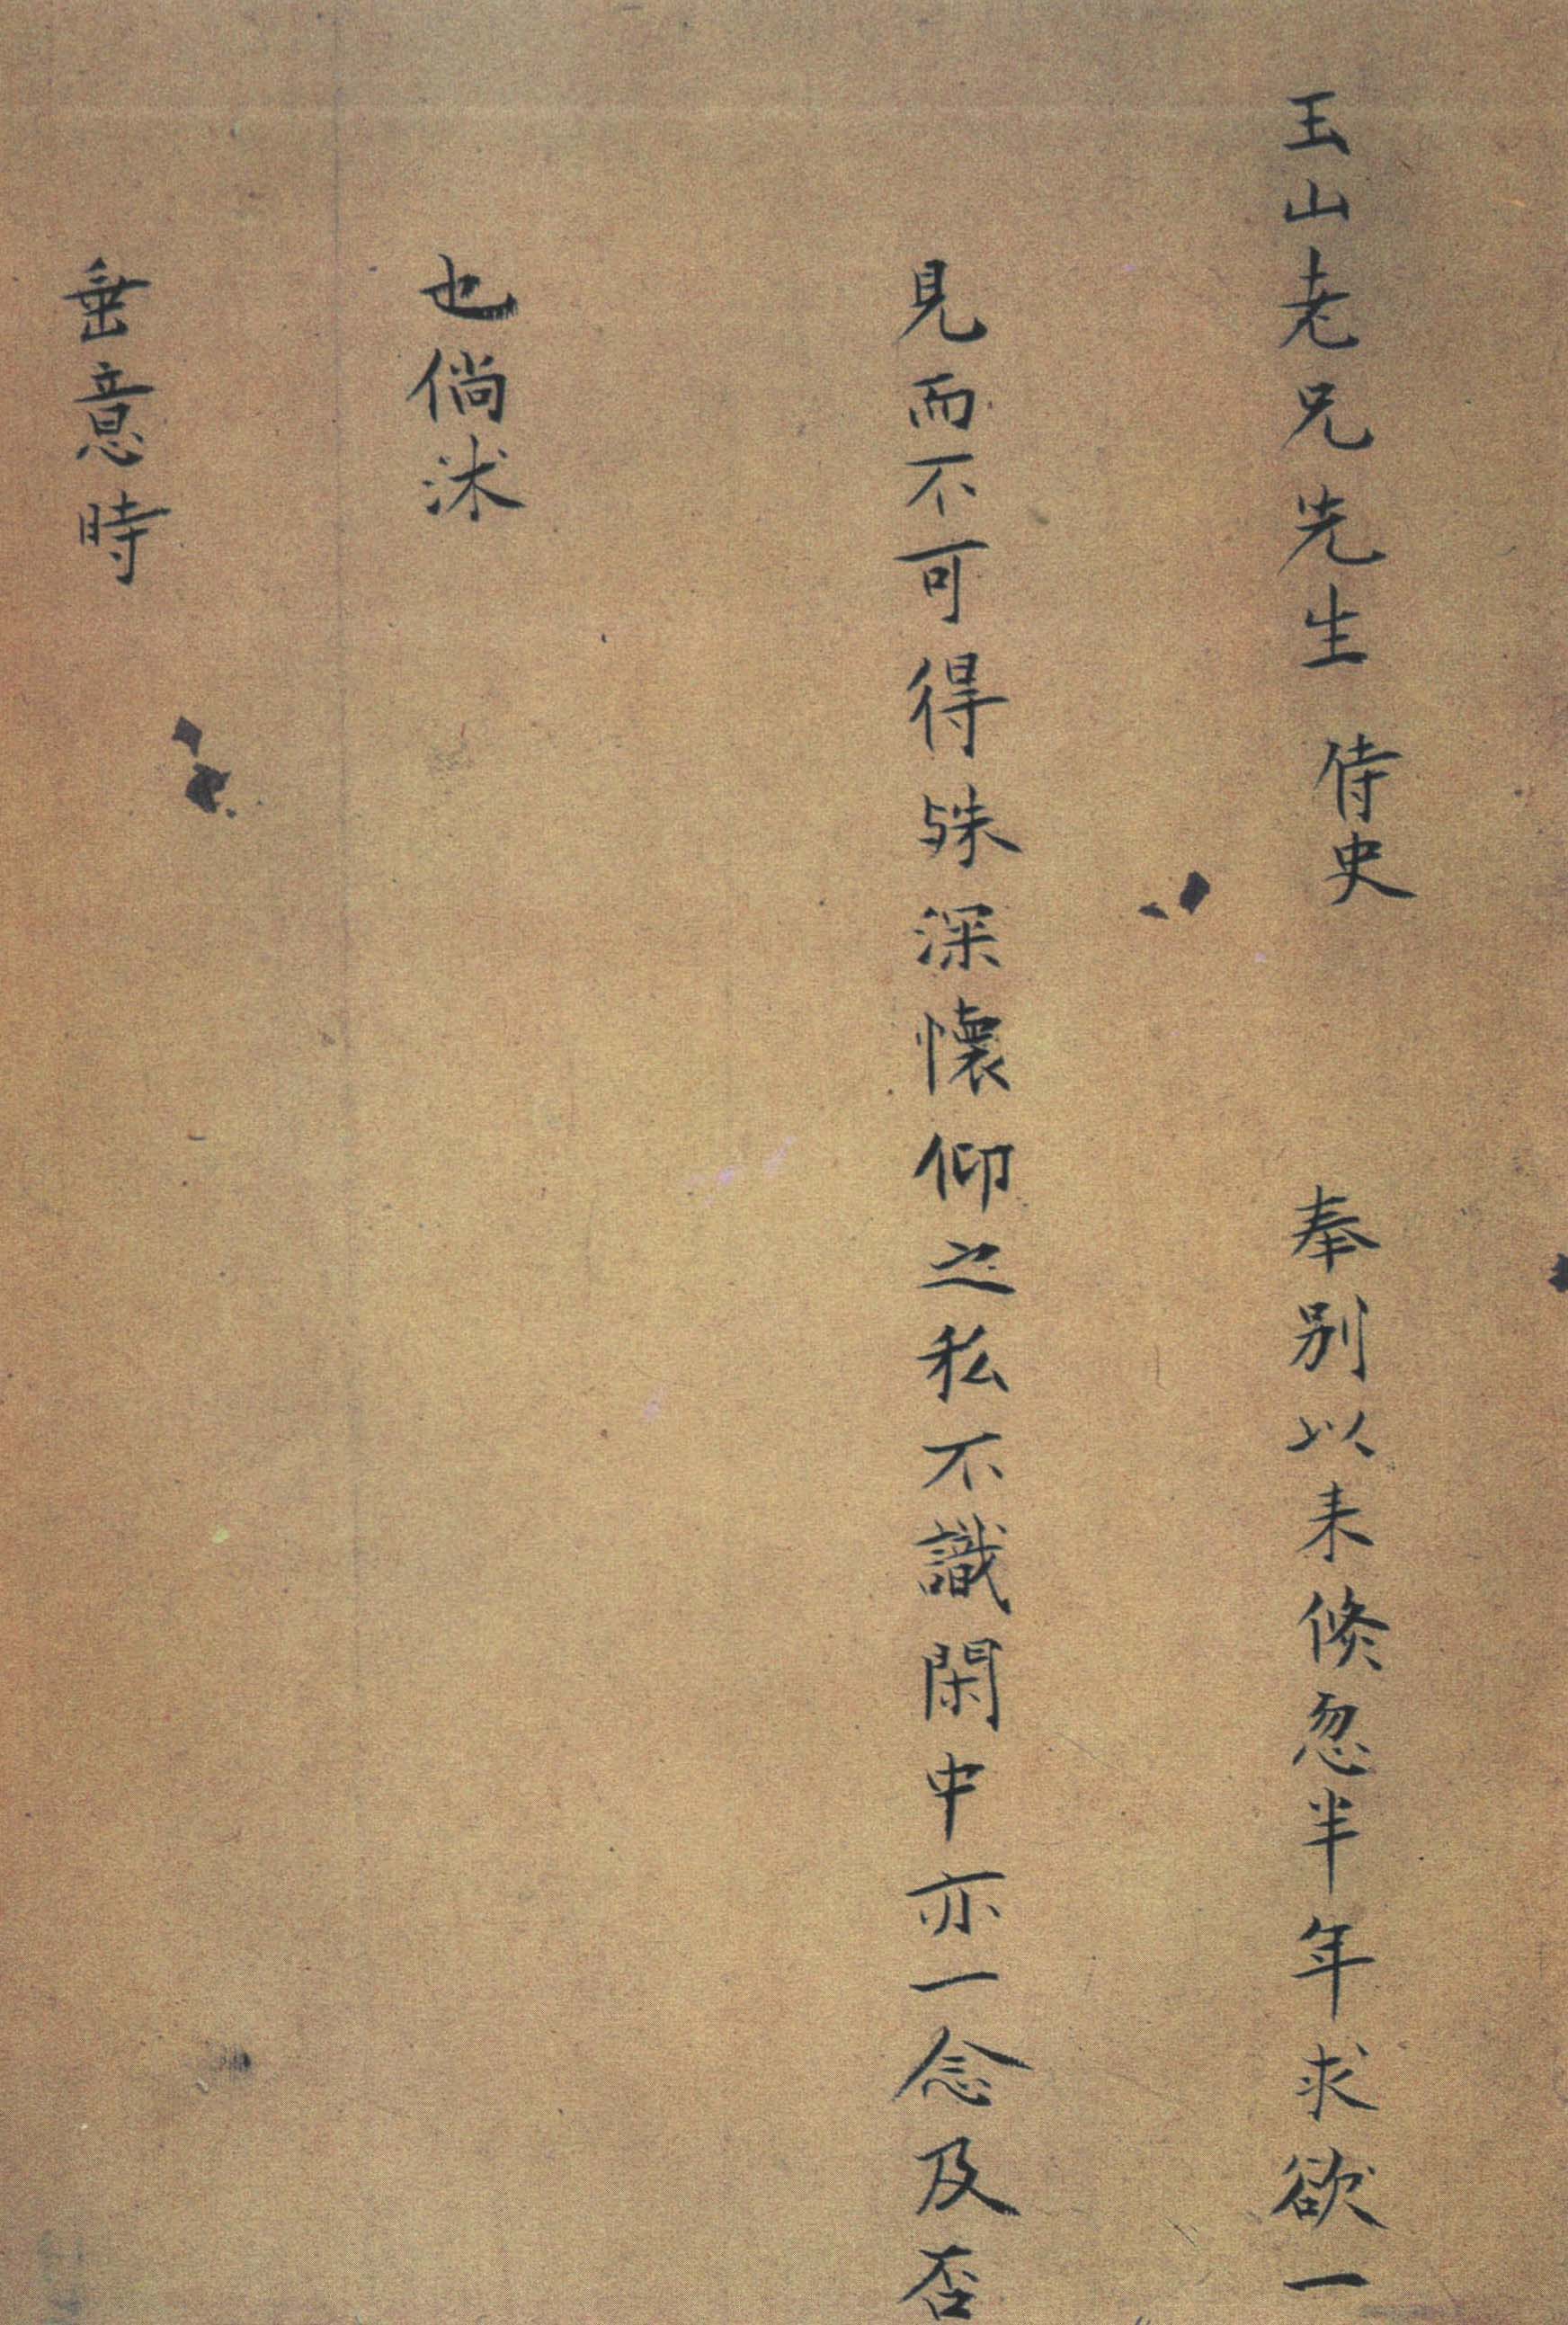 玉山老兄先生 侍史 奉别以来倏忽半年求欲一
見而不可得殊深懷仰之私不識閑中亦一念及否
也倘沭
垂意時